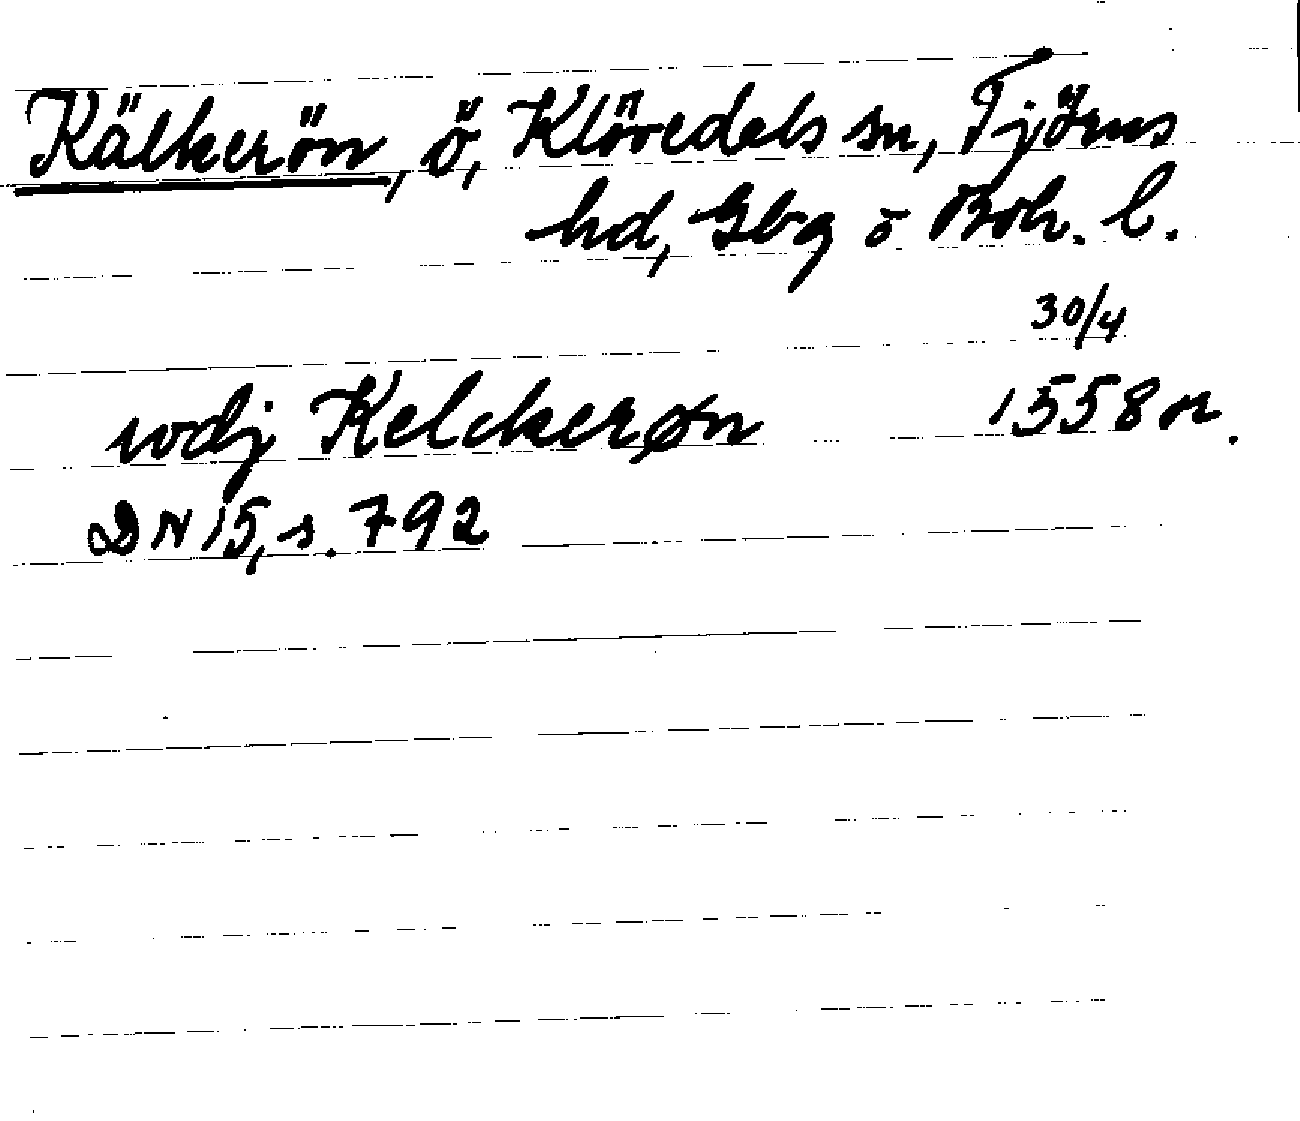 Kälkerön, ö, Klövedals sn, Tjörns
hd, Gbg o Boh. l.
30/4
wdj Kelckerøn 1558 or.
DN 15, s. 792